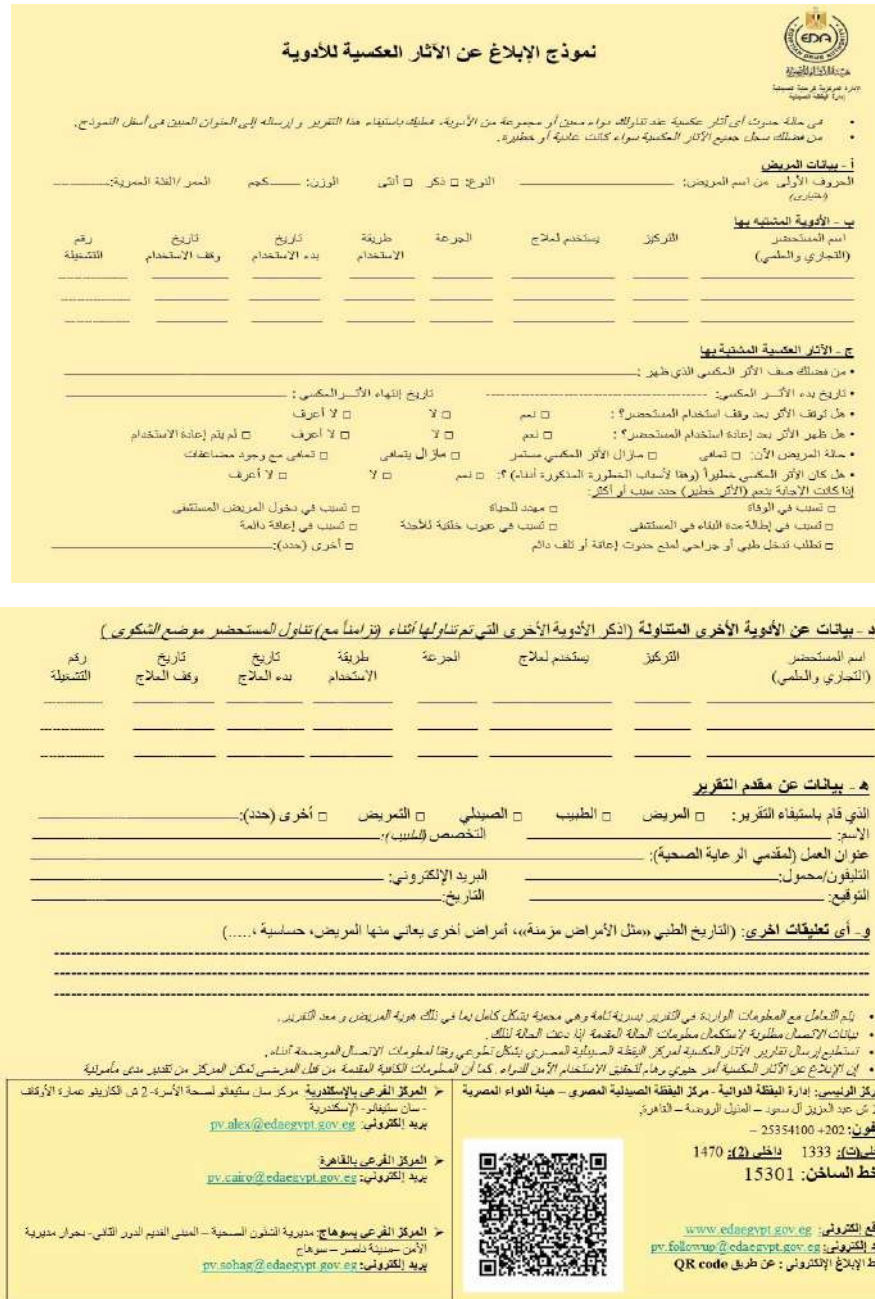 EDA
EGYPTIAN DRUG AUTHORITY
هيئة الدواء المصرية
نموذج الإبلاغ عن الآثار العكسية للأدوية
الإدارة المركزية للرعاية الصيدلية
إدارة اليقظة الصيدلية
• في حالة حدوث أي آثار عكسية عند تناولك دواء معين أو مجموعة من الأدوية، فعليك باستيفاء هذا التقرير و إرساله إلى العنوان المبين في أسفل النموذج.
• من فضلك سجل جميع الآثار العكسية سواء كانت عادية أو خطيرة.
أ - بيانات المريض
الحروف الأولى من اسم المريض: النوع: □ ذكر □ أنثى الوزن: كجم العمر /الفئة العمرية:
(اختيارى)
ب - الأدوية المشتبه بها
اسم المستحضر التركيز يستخدم لعلاج الجرعة طريقة تاريخ تاريخ رقم
(التجاري والعلمي) الاستخدام بدء الاستخدام وقف الاستخدام التشغيلة
ج - الآثار العكسية المشتبه بها
• من فضلك صف الأثر العكسي الذي ظهر :
• تاريخ بدء الأثـــر العكسي: تاريخ إنتهاء الأثـــر العكسي :
• هل توقف الأثر بعد وقف استخدام المستحضر؟ : □ نعم □ لا □ لا أعرف
• هل ظهر الأثر بعد إعادة استخدام المستحضر؟ : □ نعم □ لا □ لا أعرف □ لم يتم إعادة الاستخدام
• حالة المريض الآن: □ تعافى □ مازال الأثر العكسي مستمر □ مازال يتعافى □ تعافى مع وجود مضاعفات
• هل كان الأثر العكسي خطيراً (وفقا لأسباب الخطورة المذكورة أدناه) ؟: □ نعم □ لا □ لا أعرف
إذا كانت الاجابة بنعم (الأثر خطير) حدد سبب أو أكثر:
□ تسبب في الوفاة □ مهدد للحياة □ تسبب في دخول المريض المستشفى
□ تسبب في إطالة مدة البقاء في المستشفى □ تسبب في عيوب خلقية للأجنة □ تسبب في إعاقة دائمة
□ تطلب تدخل طبي أو جراحي لمنع حدوث إعاقة أو تلف دائم □ أخرى (حدد):
د - بيانات عن الأدوية الأخرى المتناولة (اذكر الأدوية الأخرى التي تم تناولها أثناء (تزامناً مع) تناول المستحضر موضع الشكوى )
اسم المستحضر التركيز يستخدم لعلاج الجرعة طريقة تاريخ تاريخ رقم
(التجاري والعلمي) الاستخدام بدء العلاج وقف العلاج التشغيلة
هـ - بيانات عن مقدم التقرير
الذي قام باستيفاء التقرير: □ المريض □ الطبيب □ الصيدلي □ التمريض □ أخرى (حدد):
الاسم: التخصص (للطبيب):
عنوان العمل (لمقدمي الرعاية الصحية):
التليفون/محمول: البريد الإلكتروني:
التوقيع: التاريخ:
و- أى تعليقات اخرى: (التاريخ الطبي «مثل الأمراض مزمنة»، أمراض أخرى يعاني منها المريض، حساسية ،.....)
• يتم التعامل مع المعلومات الواردة في التقرير بسرية تامة وهي محمية بشكل كامل بما في ذلك هوية المريض و معد التقرير.
• بيانات الاتصال مطلوبة لاستكمال معلومات الحالة المقدمة إذا دعت الحالة لذلك.
• تستطيع إرسال تقارير الآثار العكسية لمركز اليقظة الصيدلية المصري بشكل تطوعي وفقا لمعلومات الاتصال الموضحة أدناه.
• إن الإبلاغ عن الآثار العكسية أمر حيوي وهام لتحقيق الاستخدام الآمن للدواء. كما أن المعلومات الكافية المقدمة من قبل المرضى تمكن المركز من تقدير مدى مأمونية
ركز الرئيسي: إدارة اليقظة الدوائية - مركز اليقظة الصيدلية المصري – هيئة الدواء المصرية
ش عبد العزيز آل سعود – المنيل الروضة – القاهرة
فون: 202+ 25354100 –
خلى(ت): 1333 داخلى (2): 1470
خط الساخن: 15301
قع إلكتروني: www.edaegypt.gov.eg
د إلكتروني: pv.followup@edaegypt.gov.eg
ط الإبلاغ الإلكتروني : عن طريق QR code
➤ المركز الفرعى بالإسكندرية مركز سان ستيفانو لصحة الأسرة- 2 ش الكازينو عمارة الأوقاف
- سان ستيفانو- الإسكندرية
بريد إلكتروني: pv.alex@edaegypt.gov.eg
➤ المركز الفرعى بالقاهرة
بريد إلكتروني: pv.cairo@edaegypt.gov.eg
➤ المركز الفرعى بسوهاج: مديرية الشئون الصحية – المبنى القديم الدور الثاني- بجوار مديرية
الأمن –مدينة ناصر – سوهاج
بريد إلكتروني: pv.sohag@edaegypt.gov.eg